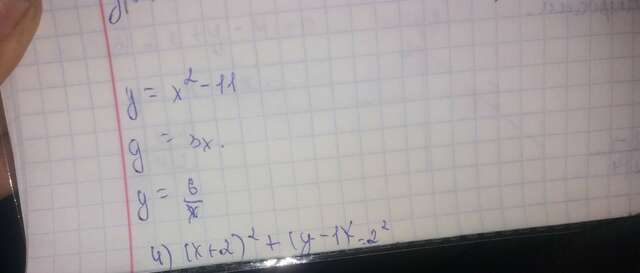 y = x² - 11
y = 3x.
y = 6/x
4) (x+2)² + (y-1)² = 2²